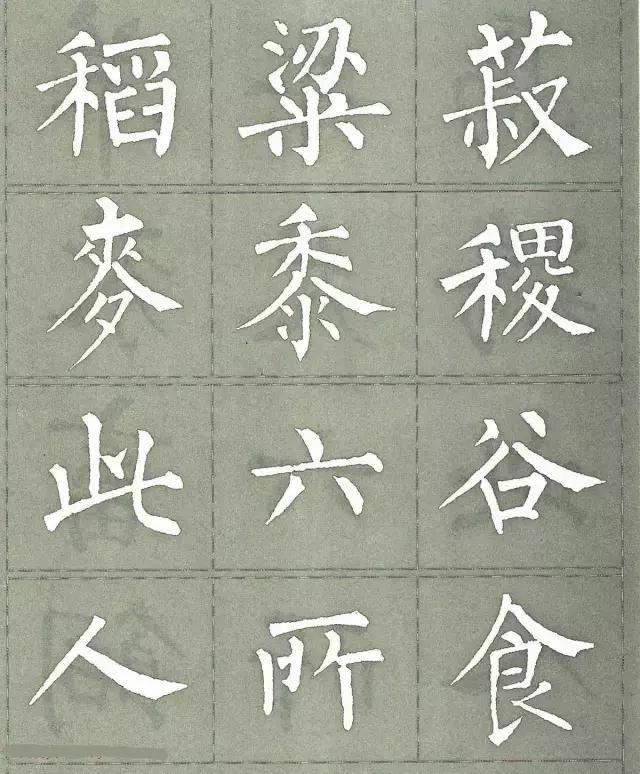 稻粱菽
麥黍稷
此六谷
人所食